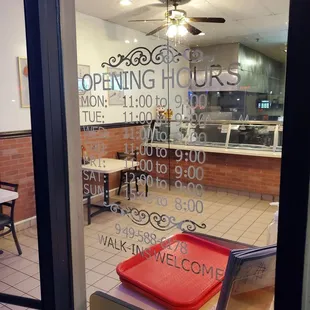 OPENING HOURS
MON: 11:00 to 9:00
TUE: 11:00 to 9:00
WED: 11:00 to 9:00
THU: 11:00 to 9:00
FRI: 11:00 to 9:00
SAT: 11:00 to 9:00
SUN: 11:00 to 8:00
WALK-INS WELCOME